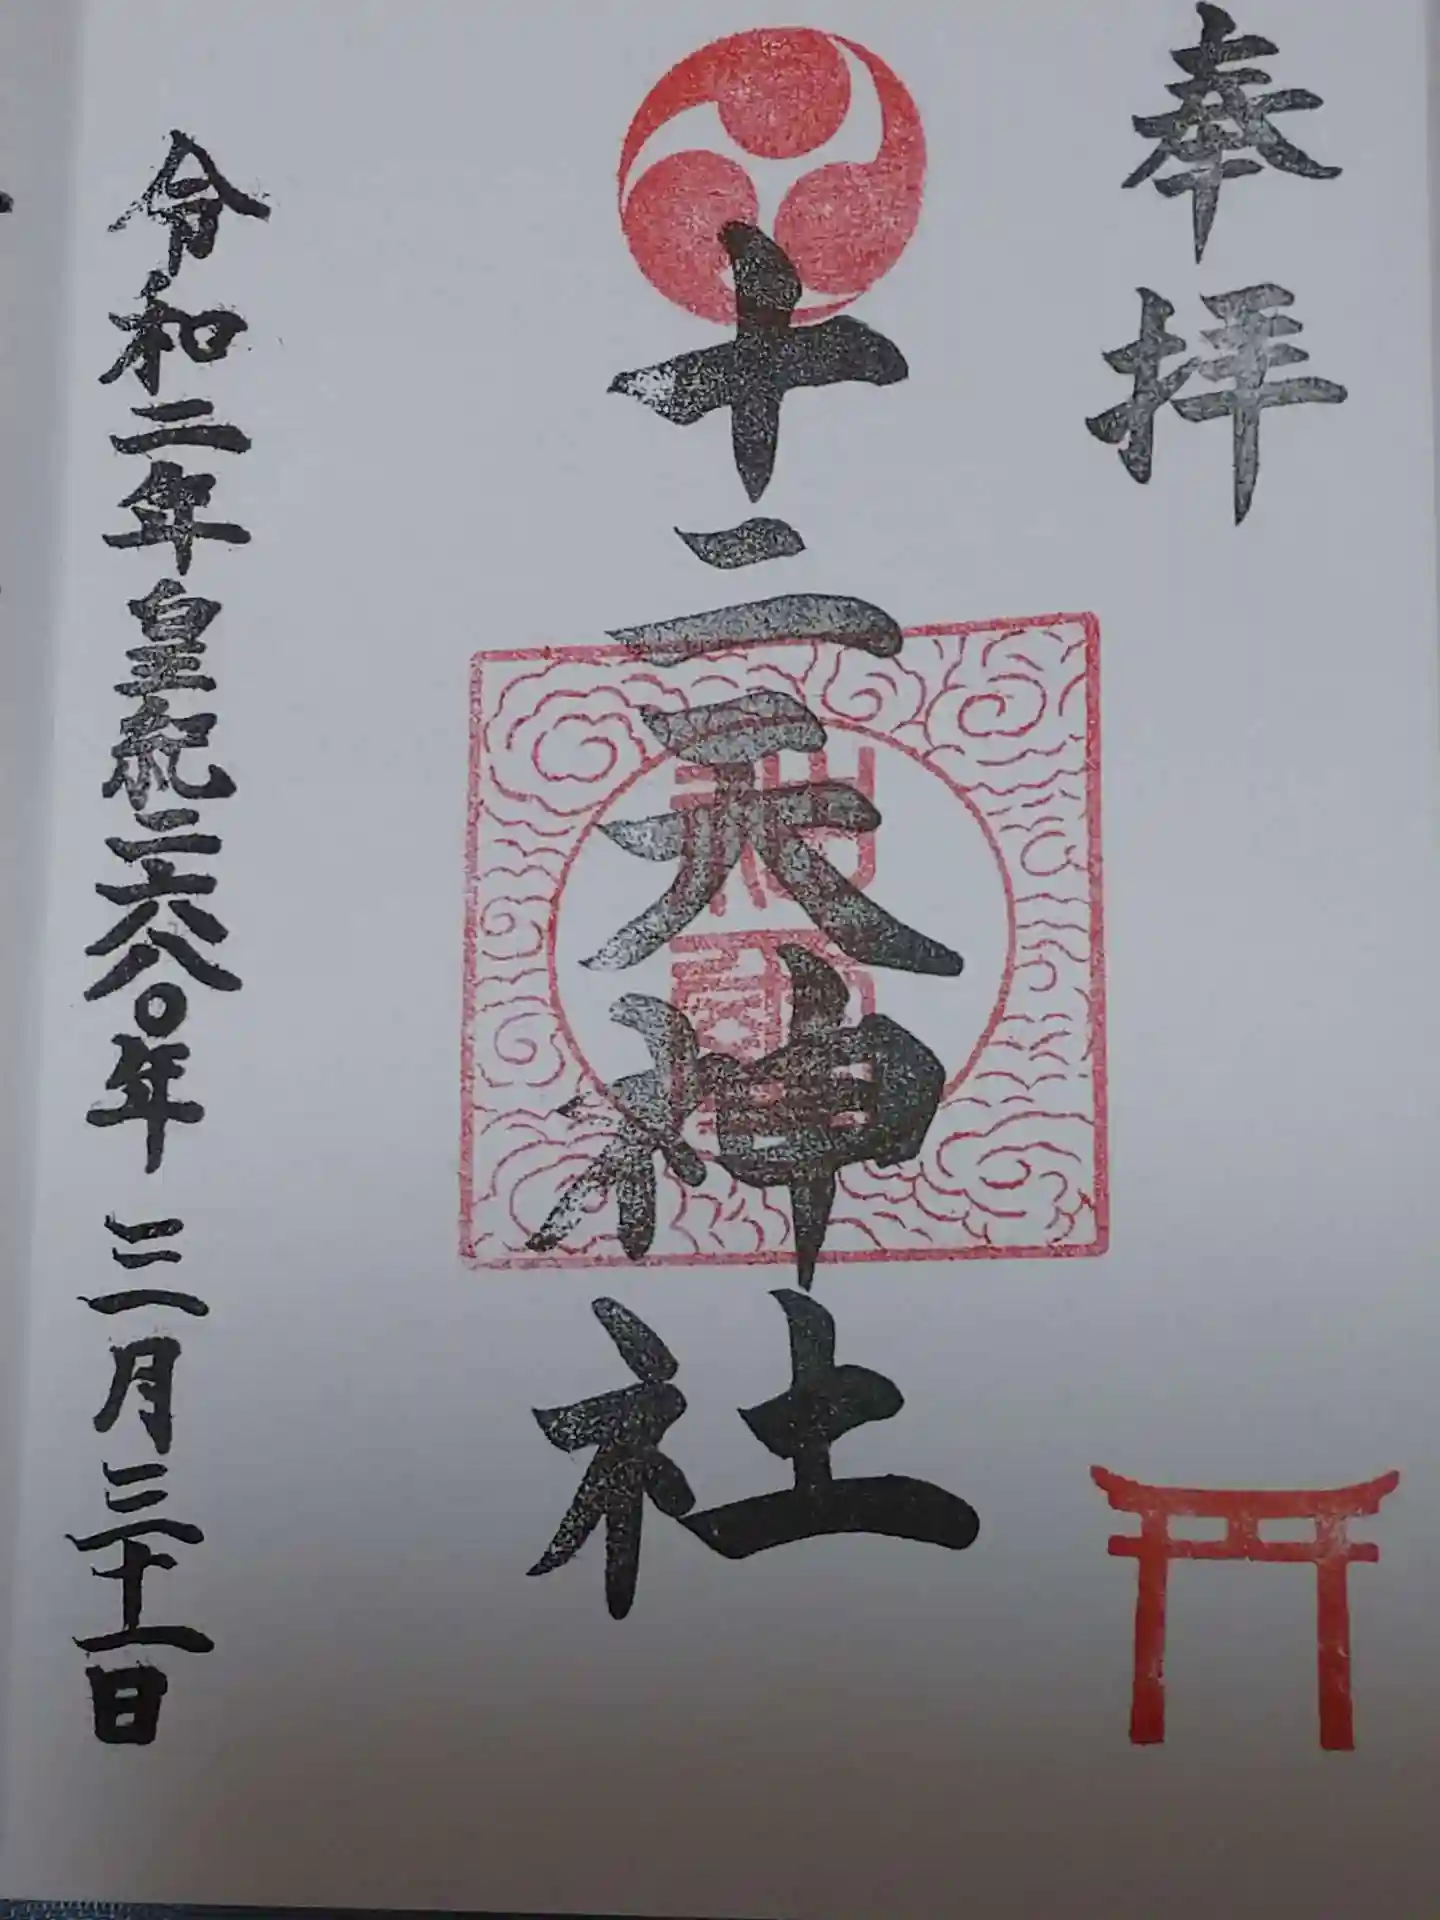 奉拝
十二天神社
令和二年皇紀二六八〇年 三月三十一日